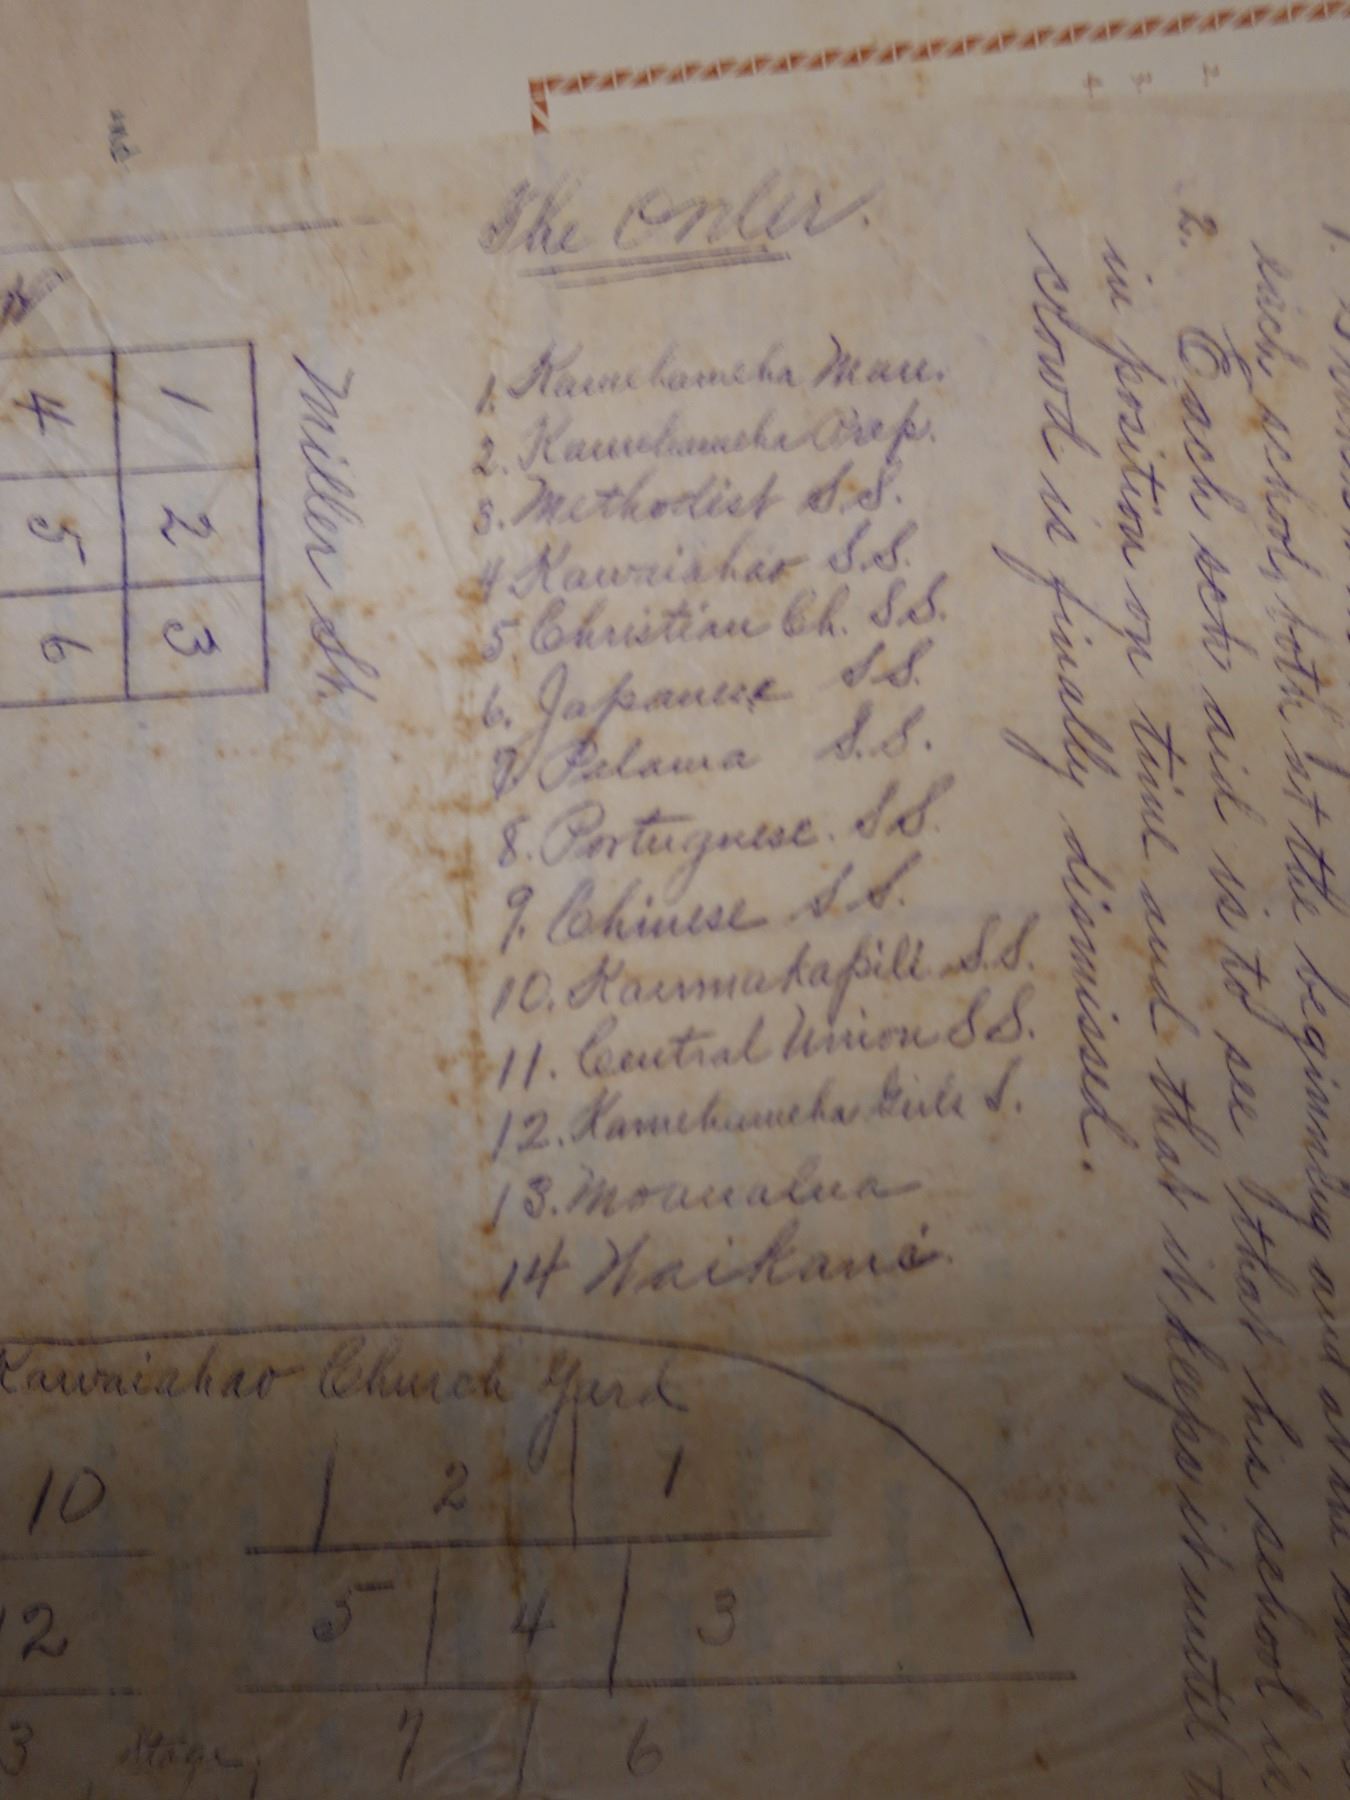 The Order.
1. Kamehameha Man.
2. Kamehameha Prep.
3. Methodist S.S.
4 Kawaiahao S.S.
5 Christian Ch. S.S.
6. Japanese S.S.
7. Palama S.S.
8. Portuguese. S.S.
9. Chinese S.S.
10. Kaumakapili S.S.
11. Central Union S.S.
12. Kamehameha Girls S.
13. Moanalua
14 Waikane.
Miller St.
1 2 3
4 5 6
Kawaiahao Church Yard
10 2 1
12 5 4 3
3 Stage. 7 6
1.
each school, both at the beginning and at the
2. Each sch aid is to see that his school is
in position on time and that it keeps it until
crowd is finally dismissed.
2.
3.
4.